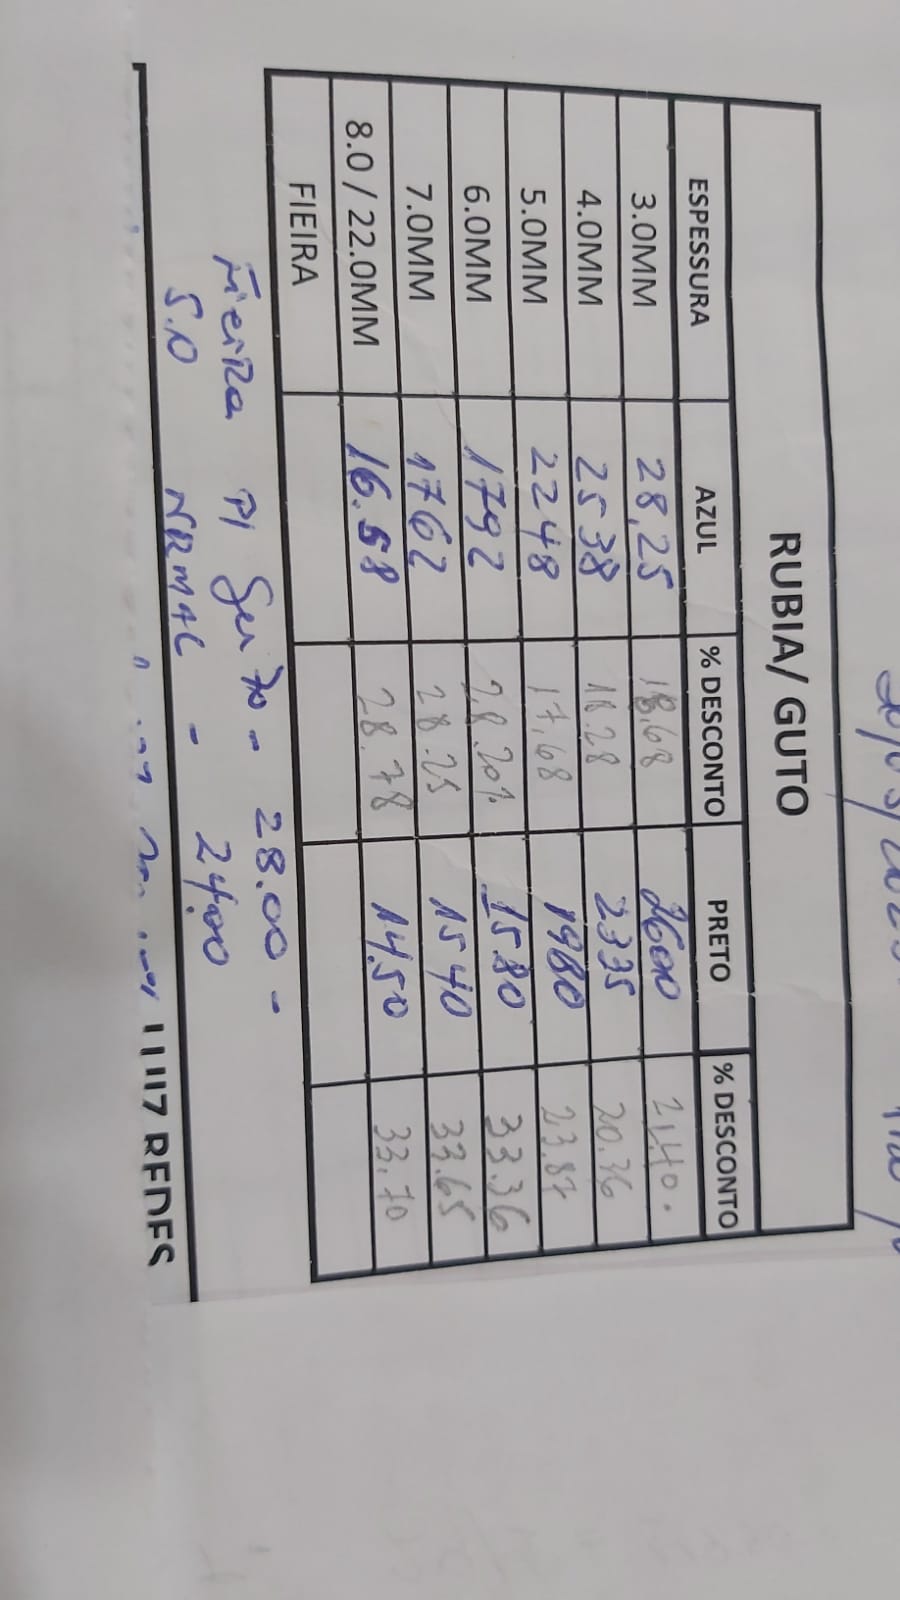 RUBIA/ GUTO
ESPESSURA AZUL % DESCONTO PRETO % DESCONTO
3.0MM 28,25 18,68 2600 21,40.
4.0MM 2538 18.28 2335 20.36
5.0MM 2248 17,68 1980 23.87
6.0MM 1792 28.20% 1580 33.36
7.0MM 1762 28.25 1540 33.65
8.0 / 22.0MM 16.58 28.78 14.50 33.70
FIEIRA
FieiRa P/ Guto - 28.00 -
5.0 NORMAL - 24.00
LUIZ REDES